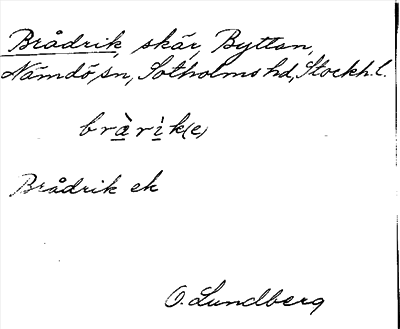 Brådrik, skär, Byttan,
Nämdö, sn, Sotholms hd, Stockh. l.
bràrik(e)
Brådrik ek
O. Lundberg